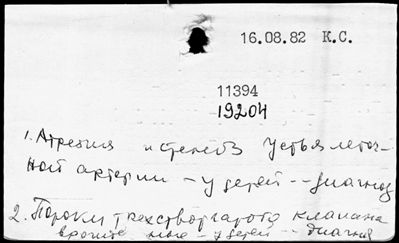 16.08.82 К.С.
11394
19204
1. Атрезия и стеноз устья легоч-
ной артерии - у детей -- диагноз
2. Пороки трехстворчатого клапана
врожденные - у детей -- диагноз